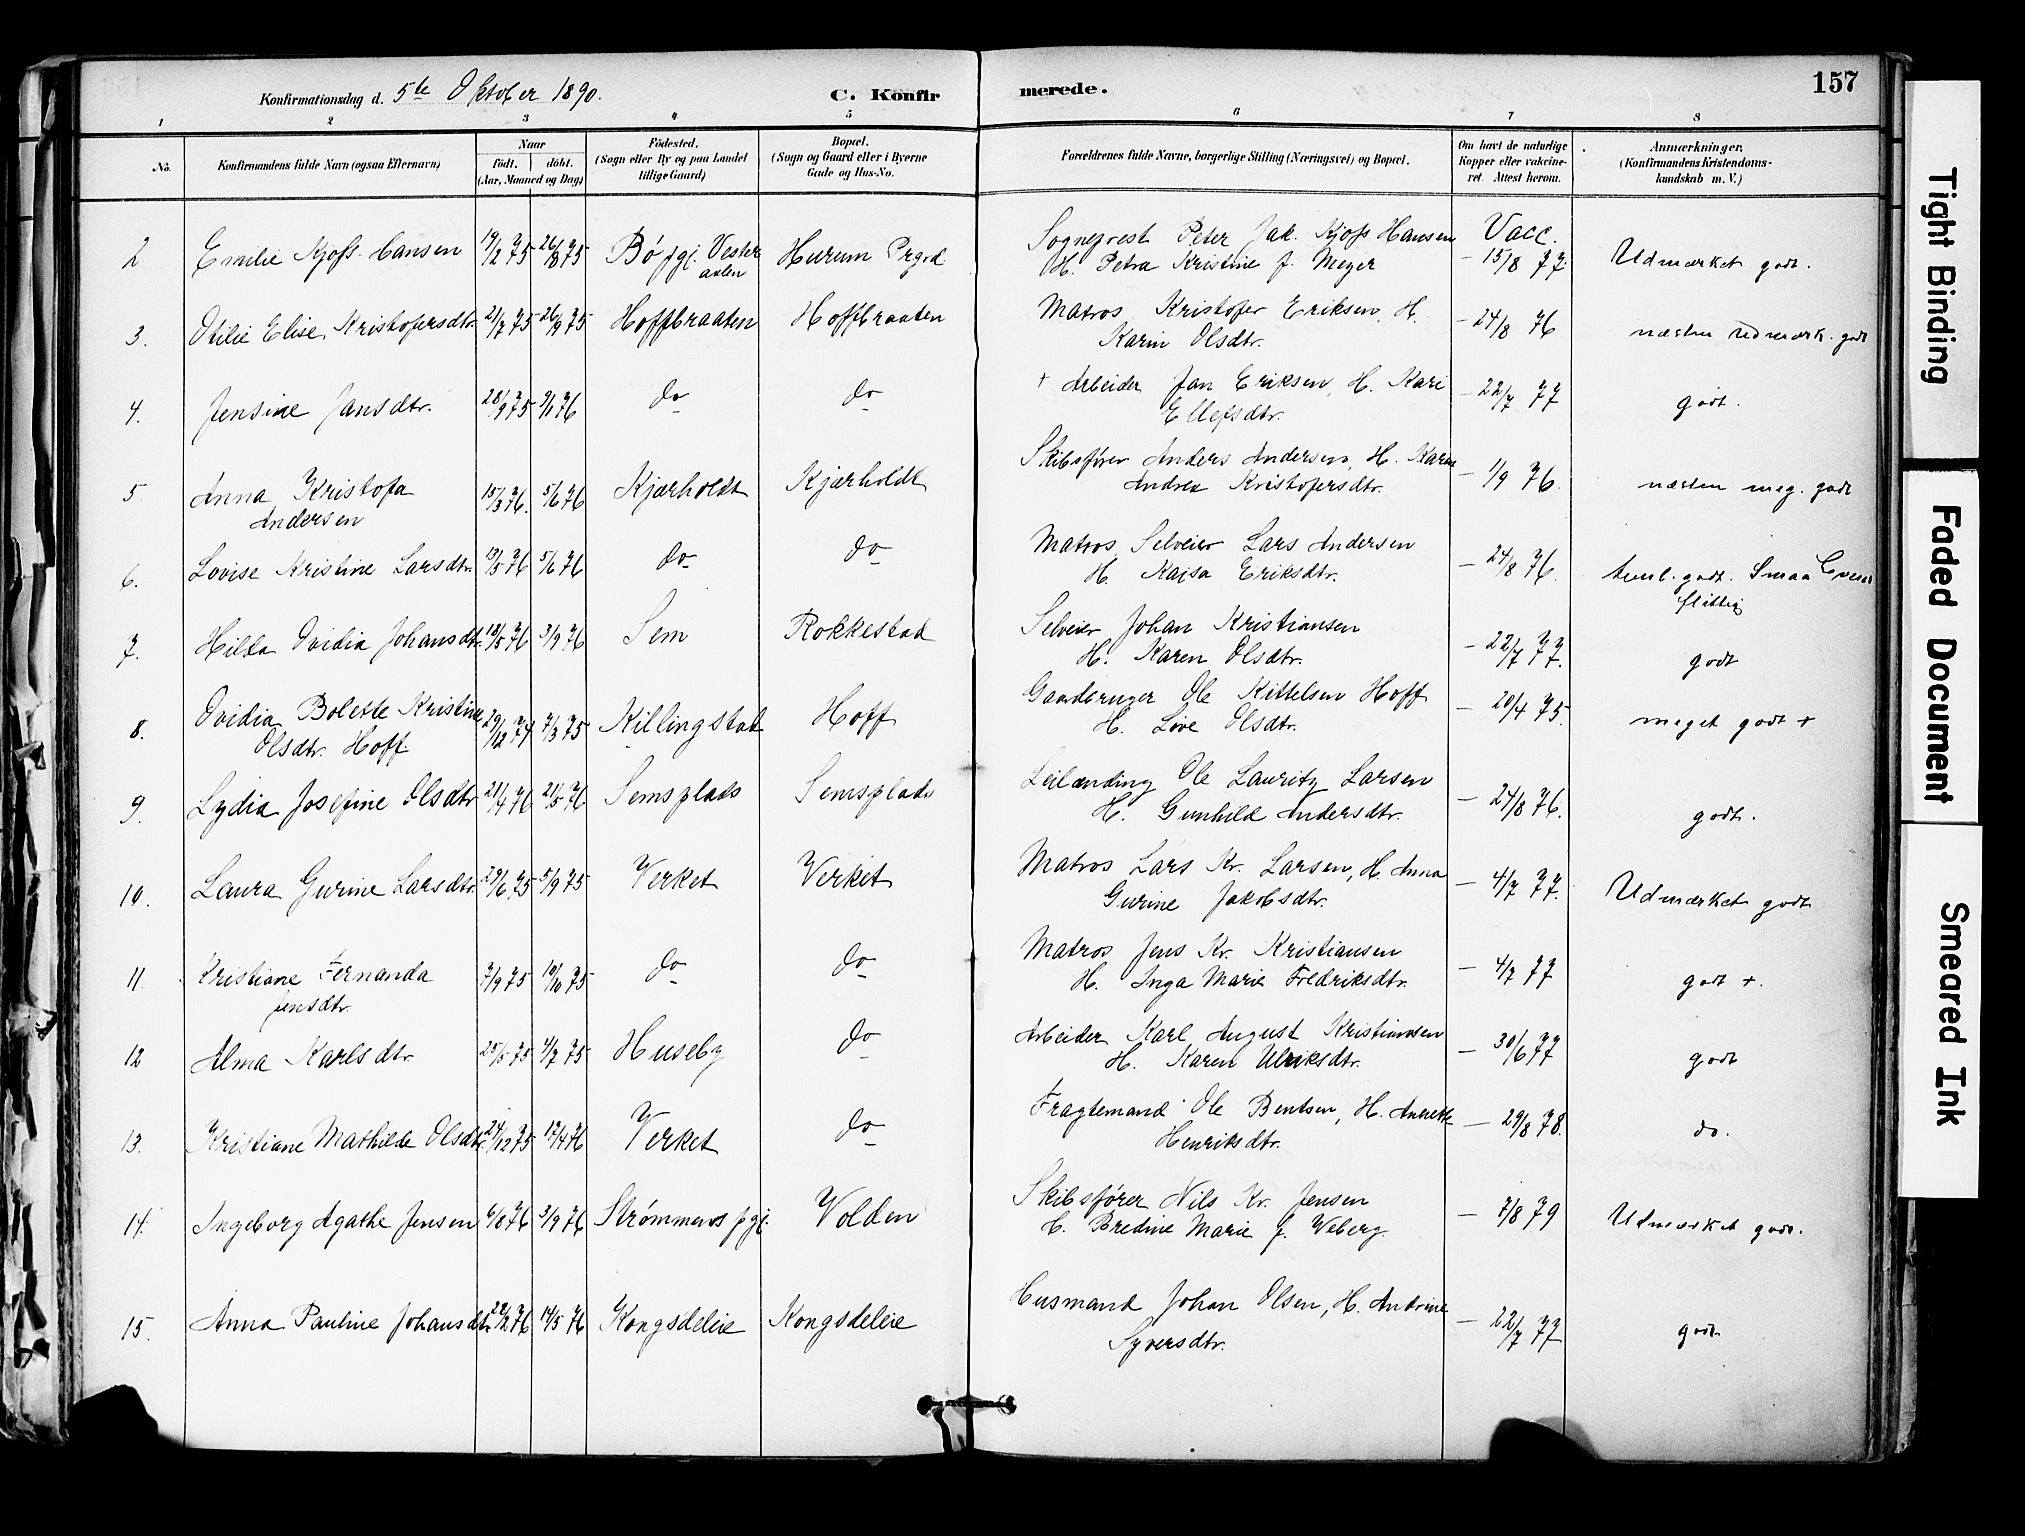 Konfirmationsdag d. 5te Oktober 1890.
C. Konfirmerede.
157
1 2 3 4 5 6 7 8
No. Konfirmandens fulde Navn (ogsaa Efternavn) Naar født. døbt. (Aar, Maaned og Dag) Födested. (Sogn eller By og paa Landet tillige Gaard) Bopæl. (Sogn og Gaard eller i Byerne Gade og Hus-No. Forældrenes fulde Navne, borgerlige Stilling (Næringsvei) og Bopæl. Om havt de naturlige Kopper eller vaccineret. Attest herom. Anmærkninger. (Konfirmandens Kristendomskundskab m. V.)
2 Emilie Kjoss-Hansen 19/2 75 26/8 75 Bø pgj. Vesteraalen Hurum Prgrd Sogneprest Peter Jak. Kjoss Hansen
H. Petra Kristine f. Meyer Vacc. - 15/8 77. Udmærket godt.
3. Otilie Elise Kristofersdtr. 21/7 75 26/9 75 Hoffbraaten Hoffbraaten Matros Kristofer Eriksen, H.
Karin Olsdtr. - 24/8 76 næsten udmærk. godt
4. Jensine Jansdtr. 28/9 75 9/1 76 do do + Arbeider Jan Eriksen, H. Kari
Ellefsdtr. - 22/7 77 godt.
5. Anna Kristofa
Andersen 15/3 76. 5/6 76 Kjærholdt Kjærholdt Skibsfører Anders Andersen, H. Karen
Andrea Kristofersdtr. - 1/9 76. næsten meg. godt
6. Lovise Kristine Larsdtr. 19/3 76 5/6 76 do do Matros, Selveier Lars Andersen
H. Kaisa Eriksdtr. - 24/8 76. teml. godt. Smaa Evner
flittig
7. Hilda Ovidia Johansdtr. 18/5 76 3/9 76 Sem Rokkestad Selveier Johan Kristiansen
H. Karen Olsdtr. - 22/7 77. godt
8. Ovidia Bolette Kristine
Olsdtr. Hoff 29/12 74 7/3 75 Killingstad Hoff Gaardbruger Ole Kittelsen Hoff
H. Live Olsdtr. - 20/4 75. meget godt +
9. Lydia Josefine Olsdtr 21/4 76 21/5 76 Semsplads Semsplads Leilænding Ole Lauritz Larsen
H. Gunhild Andersdtr. - 24/8 76. godt.
10. Laura Gurine Larsdtr. 29/6 75 5/9 75 Verket Verket Matros Lars Kr. Larsen, H. Anna
Gurine Jakobsdtr. - 4/7 77. Udmærket godt
11. Kristiane Fernanda
Jensdtr. 7/9 75 10/10 75 do do Matros Jens Kr. Kristiansen
H. Inga Marie Fredriksdtr. - 4/7 77 godt +.
12 Alma Karlsdtr. 25/5 75 4/7 75 Huseby do Arbeider Karl August Kristiansen
H. Karen Ulriksdtr. - 30/6 77 godt
13. Kristiane Mathilde Olsdtr. 24/12 75 17/4 76 Verket do Fragtemand Ole Bentsen, H. Anette
Henriksdtr. - 29/8 78. do.
14. Ingeborg Agathe Jensen 6/8 76 3/9 76 Strømmens pgj. Volden Skibsfører Nils Kr. Jensen
H. Bredine Marie f. Weberg - 7/8 79 Udmærket godt.
15. Anna Pauline Johansdtr. 22/2 76 14/5 76 Kongsdeleie Kongsdeleie Husmand Johan Olsen, H. Andrine
Syversdtr. - 22/7 77 godt
Tight Binding
Faded Document
Smeared Ink